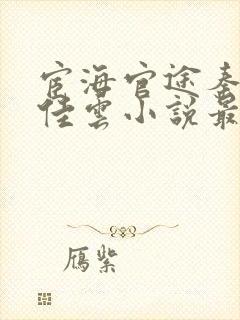 宦海官途秦
佳雲小說最
雁紫